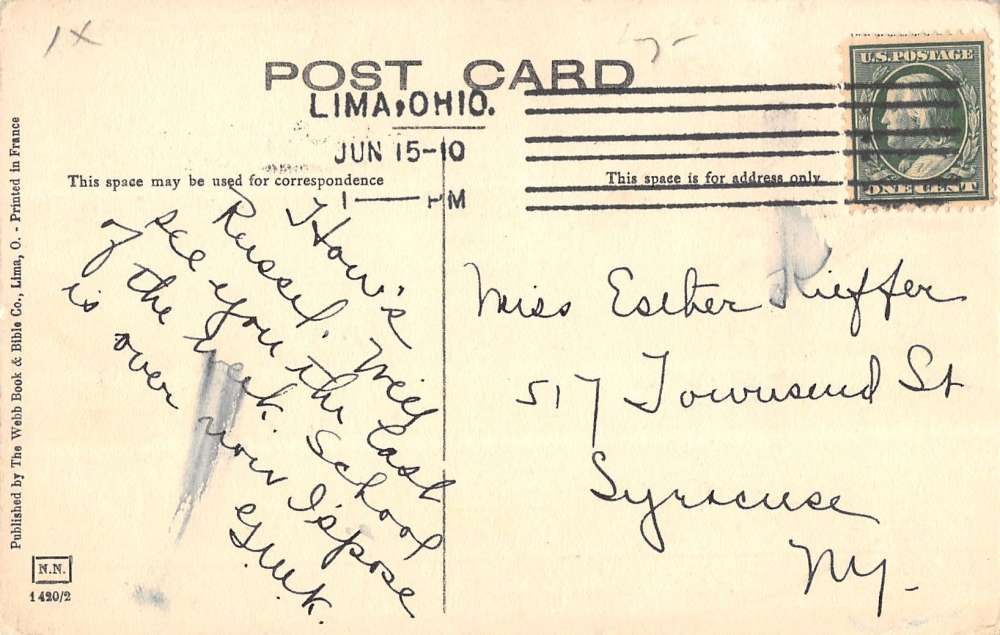 1X
POST CARD
LIMA, OHIO.
JUN 15-10
1 — PM
U.S. POSTAGE
ONE CENT
This space may be used for correspondence
This space is for address only
How's
Russel. Will
see you the last
of the week. School
is over now I s'pose
Miss Esther Kieffer
517 Townsend St
Syracuse
NY.
Published by The Webb Book & Bible Co., Lima, O. - Printed in France
N.N.
1420/2